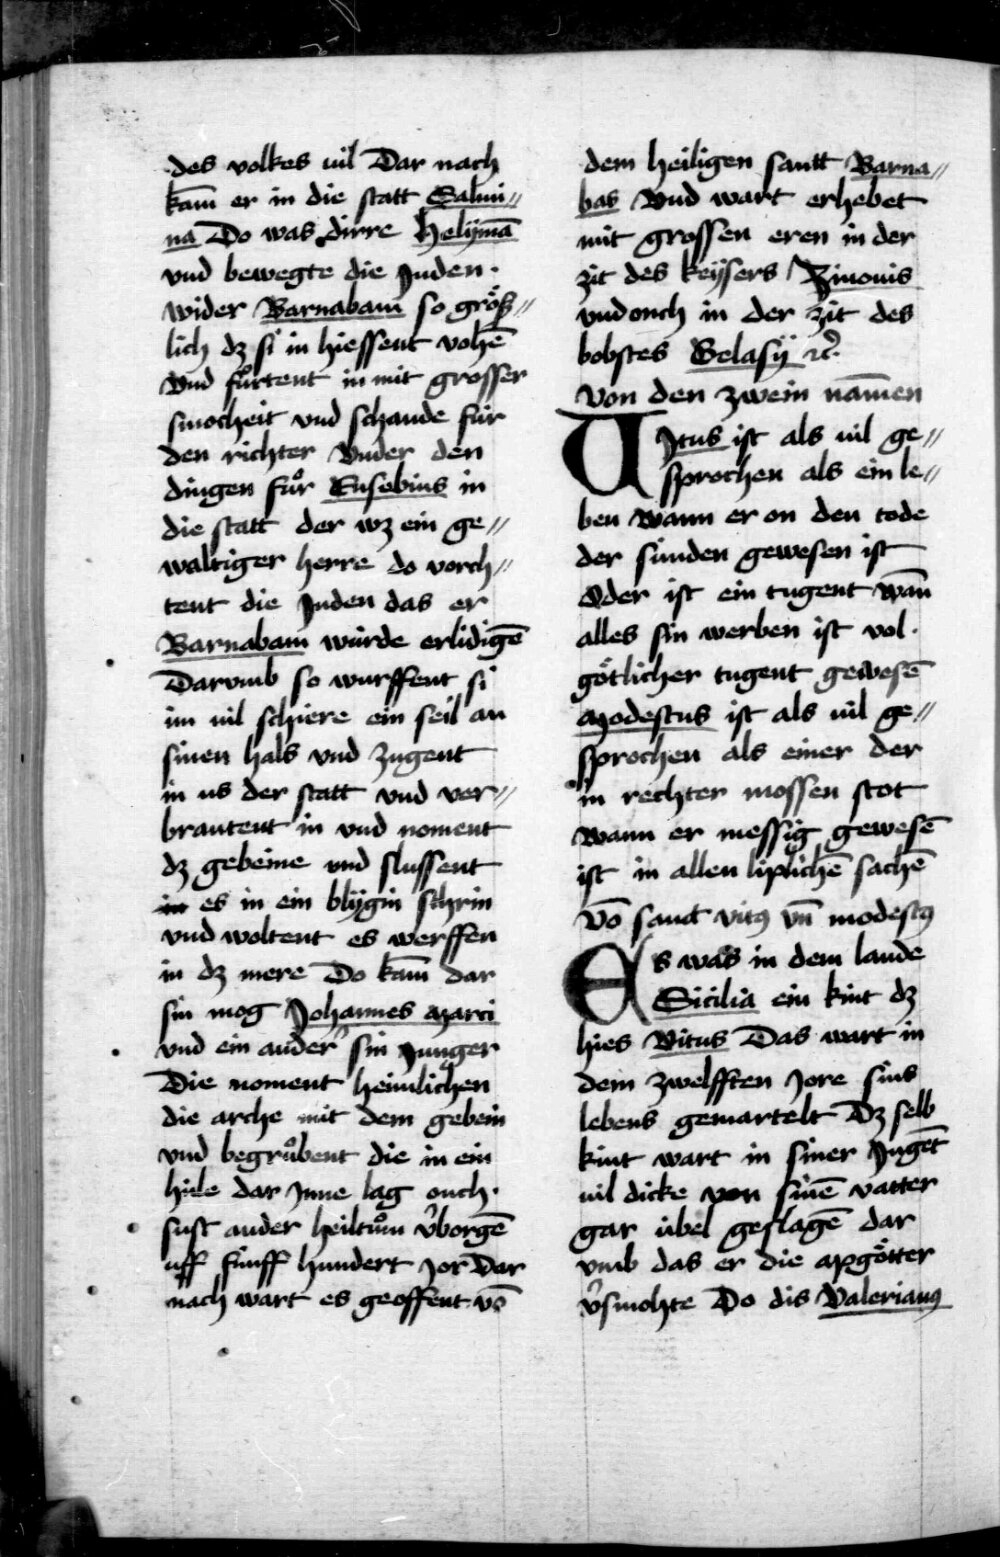 des volkes uil Dar nach
kam̄ er in die statt Salmi//
na Do was dirre Helÿmā
vnd bewegte die Juden.
wider Barnabam so größ//
lich dz si in hiessent vohē
Vnd fůrtent in mit grosser
smocheit vnd schande für
den richter Vnder den
dingen fůr Eusebius in
die statt der wz ein ge//
waltiger herre do vorch//
tent die Juden das er
Barnabam würde erlidigē
Darvmb so wurffent si
im uil schiere ein seil an
sinen hals vnd zugent
in us der statt vnd ver//
brantent in vnd noment
dz gebeine vnd slussent
es in ein blÿgin schrin
vnd woltent es werffen
in dz mere Do kam̄ dar
sin mog Johannes Marci
vnd ein ander sin Junger
Die noment heimlichen
die arche mit dem gebein
vnd begrůbent die in ein
hüle dar Jnne lag ouch.
sust ander heiltům v̓borgē
uff fünff hundert Jor Dar
nach wart es geoffent vō
dem heiligen santt Barna//
bas Vnd wart erhebet
mit grossen eren in der
zit des keÿsers Zinonis
vnd ouch in der zit des
bobstes Gelasÿ ꝛc.
Von den zwein nam̄en
VJtus ist als uil ge//
sprochen als ein le//
ben Wann er on den tode
der sünden gewesen ist
Oder ist ein tugent wan̄
alles sin werben ist vol.
götlicher tugent gewesē
Modestus ist als uil ge//
sprochen als einer der
in rechter mossen stot
Wann er messig gewesē
ist in allen liplichē sachē
Vō sanct vitꝯ vn̄ modestꝯ
Es was in dem lande
Sicilia ein kint dz
hies Vitus Das wart in
dem zwelfften Jore sins
lebens gemartelt Dz selb
kint wart in siner Jugēt
uil dicke von sinē vatter
gar übel geslagē dar
vmb das er die apgötter
v̓smohte Do dis Valerianꝯ